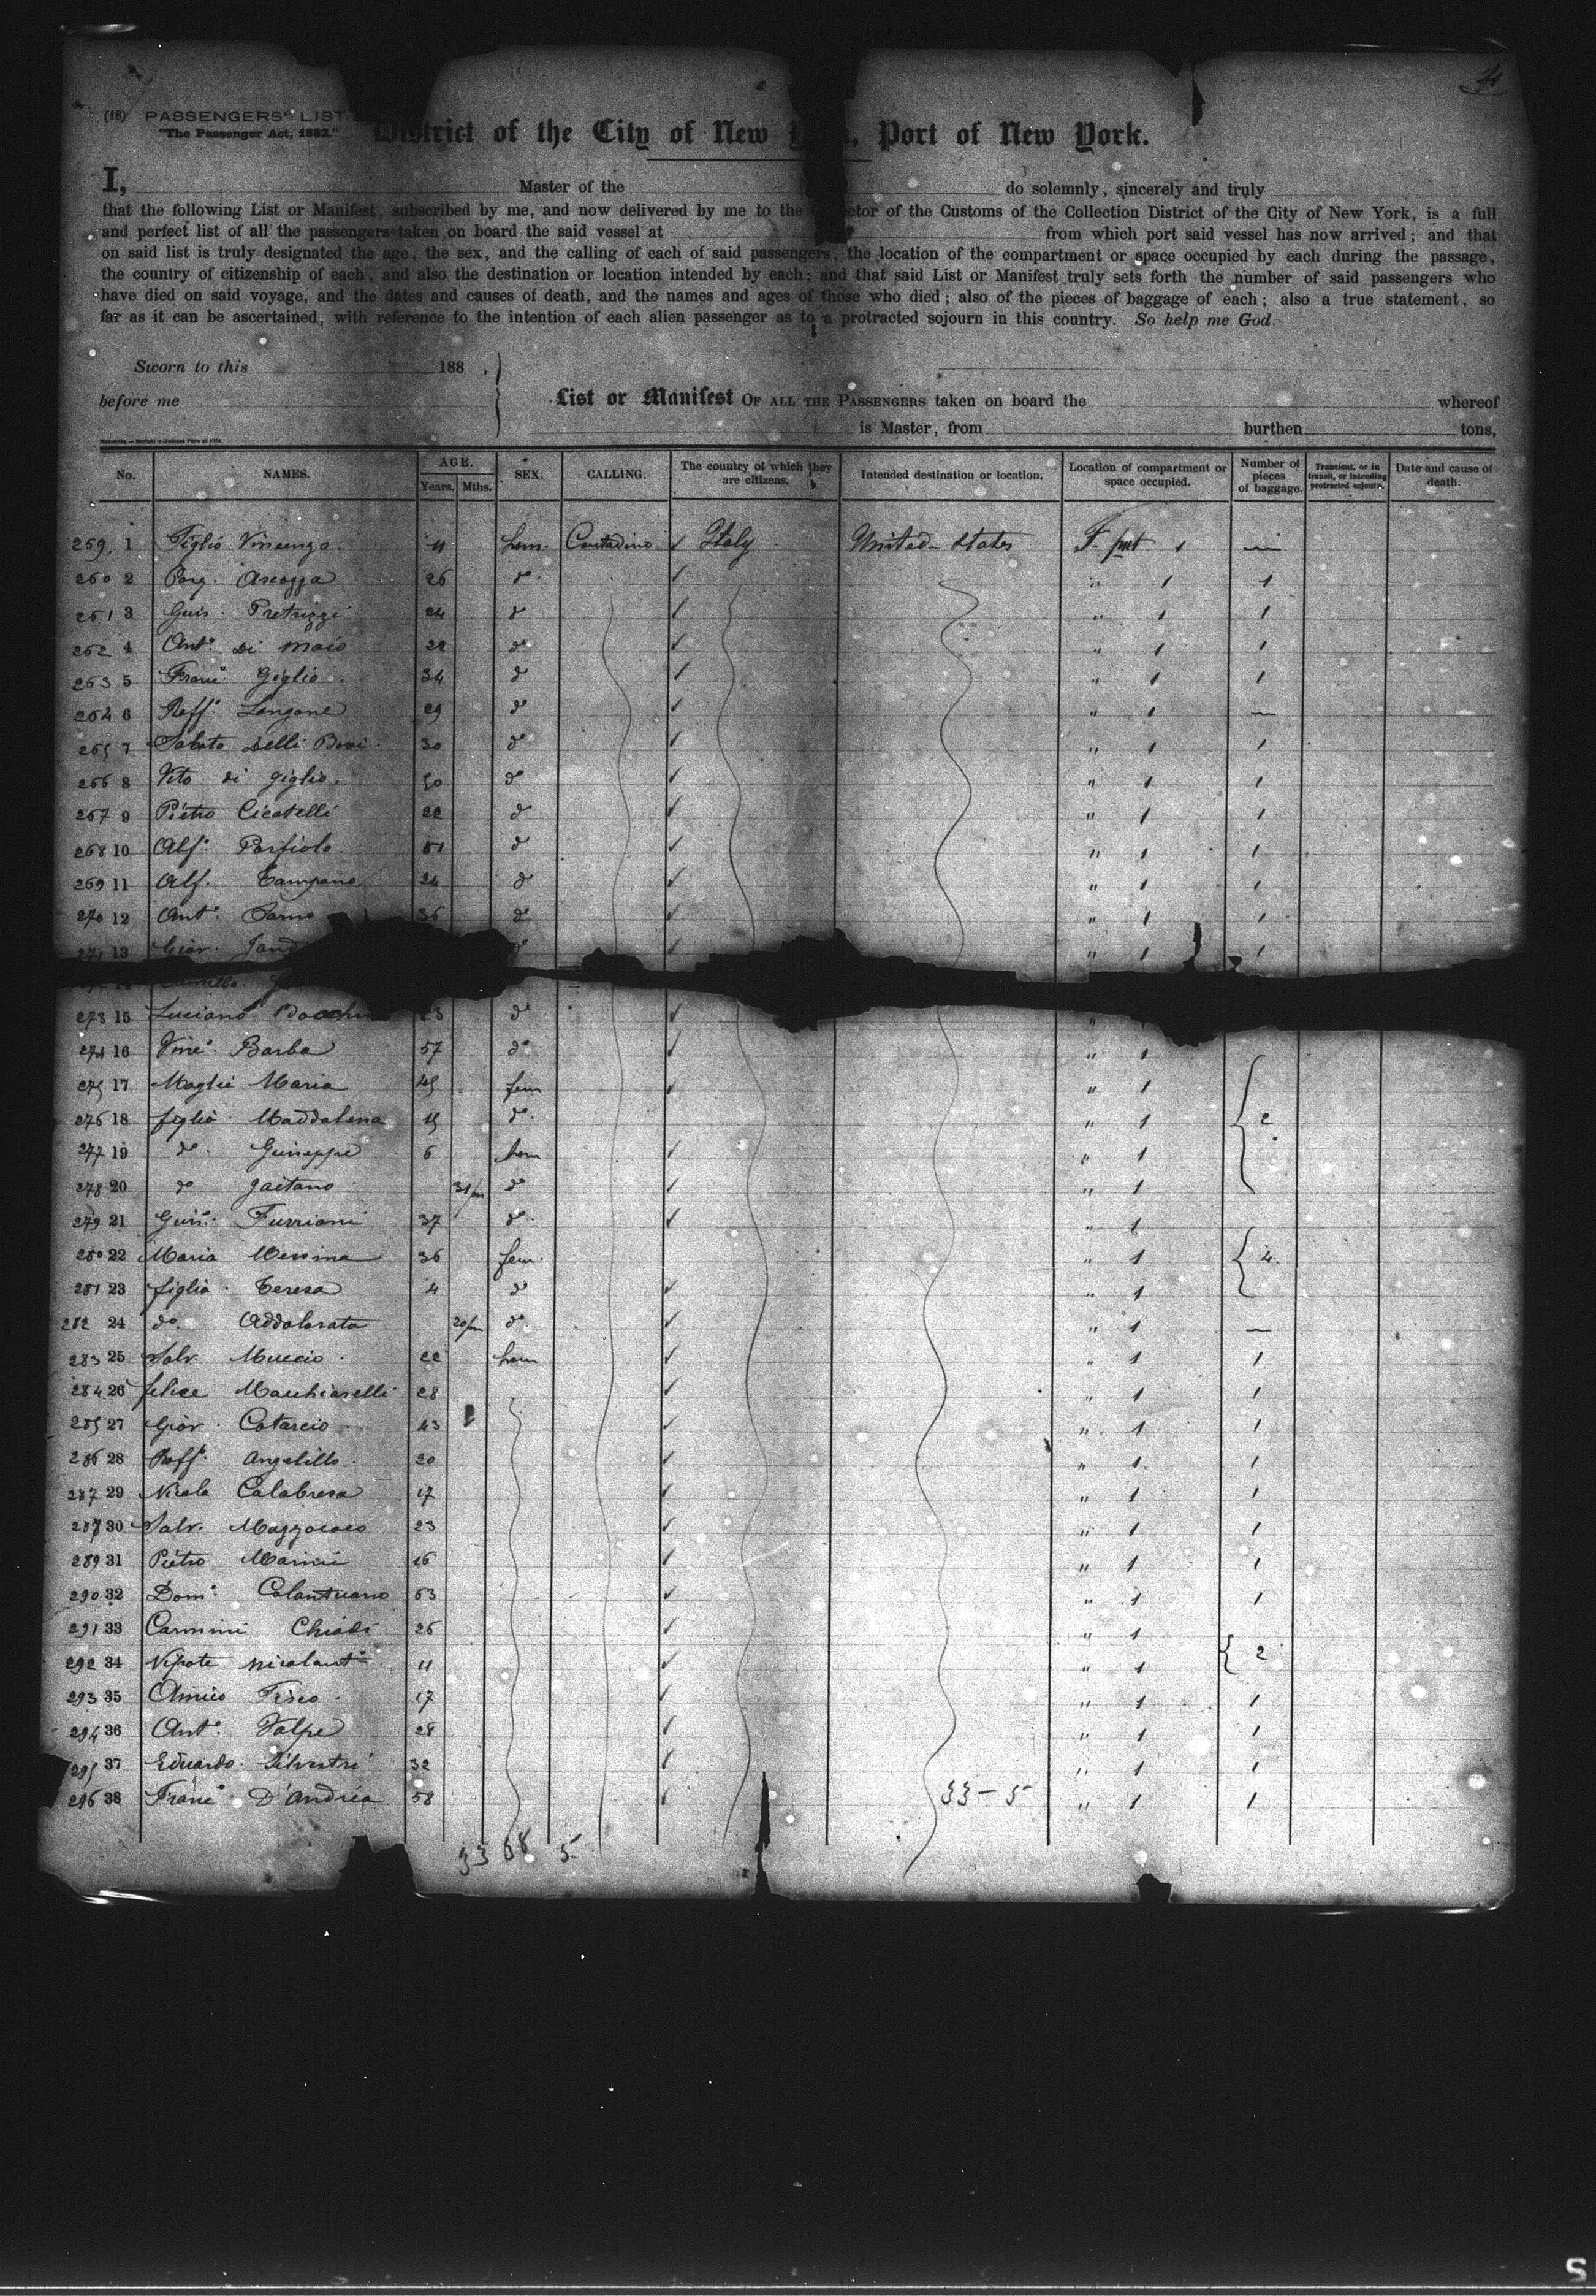 4
(18) PASSENGERS' LIST.
"The Passenger Act, 1882."
District of the City of New , Port of New York.
I, Master of the do solemnly, sincerely and truly
that the following List or Manifest, subscribed by me, and now delivered by me to the of the Customs of the Collection District of the City of New York, is a full
and perfect list of all the passengers taken on board the said vessel at from which port said vessel has now arrived; and that
on said list is truly designated the age, the sex, and the calling of each of said passengers, the location of the compartment or space occupied by each during the passage,
the country of citizenship of each, and also the destination or location intended by each; and that said List or Manifest truly sets forth the number of said passengers who
have died on said voyage, and the dates and causes of death, and the names and ages of those who died; also of the pieces of baggage of each; also a true statement, so
far as it can be ascertained, with reference to the intention of each alien passenger as to a protracted sojourn in this country. So help me God.
Sworn to this 188 ,
before me List or Manifest OF ALL THE PASSENGERS taken on board the whereof
is Master, from burthen tons,
No. NAMES. AGE. Years. Mths. SEX. CALLING. The country of which they are citizens. Intended destination or location. Location of compartment or space occupied. Number of pieces of baggage. Transient, or in transit, or intending protracted sojourn. Date and cause of death.
259 1 Figlio Vincenzo 11 hom. Contadino ✓ Italy United States F. pnt 1 —
260 2 26 do ✓ " 1 1
261 3 Guis. Pretuzzi 24 do ✓ " 1 1
262 4 Anto. di Maio 22 do ✓ " 1 1
263 5 Franco. Giglio 34 do ✓ " 1 1
264 6 Raffo. Langone 29 do ✓ " 1 —
265 7 Sabato delli Bovi 30 do ✓ " 1 1
266 8 Vito di Giglio 30 do ✓ " 1 1
267 9 Pietro Cicatelli 22 do ✓ " 1 1
268 10 Alfo. do ✓ " 1 1
269 11 Alf. Campano 24 do ✓ " 1 1
270 12 Anto. 36 do ✓ " 1 1
271 13 Giov. do ✓ " 1 1
273 15 Luciano do ✓ "
274 16 Vinco. Barba 57 do ✓ " 1
275 17 Moglie Maria 45 fem ✓ " 1
276 18 figlia Maddalena 15 do. " 1 2
277 19 do. Guiseppe 6 hom ✓ " 1
278 20 do Gaetano do ✓ " 1
279 21 Guise. Furriani 37 do. ✓ " 1
280 22 Maria Messina 36 fem. " 1 4
281 23 figlia Teresa 4 do ✓ " 1
282 24 do. Addolorata 20/m do ✓ " 1 —
283 25 Salv. Muccio 22 hom ✓ " 1 1
284 26 felice Macchiarelli 28 ✓ " 1 1
285 27 Giov. Catarcio 43 ✓ " 1 1
286 28 Raffo. Angelillo 20 ✓ " 1 1
287 29 Nicola Calabresa 17 ✓ " 1 1
288 30 Salv. Mazzocaco 23 ✓ " 1 1
289 31 Pietro Marini 16 ✓ " 1 1
290 32 Domo. Colantuono 63 ✓ " 1 1
291 33 Carmini Chiodi 26 ✓ " 1
292 34 Nipote Nicolanto 11 ✓ " 1 2
293 35 Amico Fisco 17 ✓ " 1 1
294 36 Anto. Volpe 28 ✓ " 1 1
295 37 Eduardo Silvestri 32 ✓ " 1 1
296 38 Franco D'Andrea 58 ✓ 33-5 " 1 1
33 38 5
5